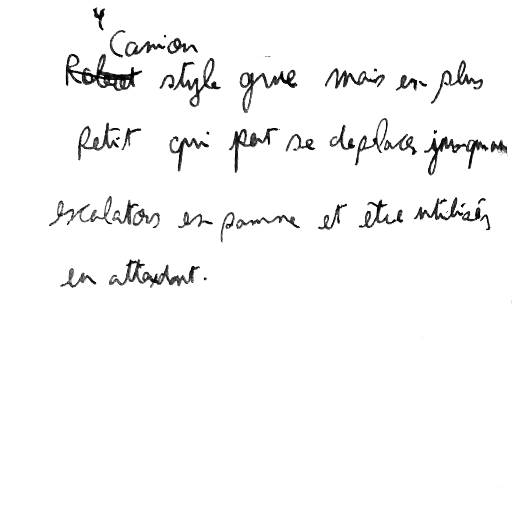 4
Camion
Robot style grue mais en plus
Petit qui peut se deplacer jusqu'au
escalators en panne et être utilisés
en attendant.